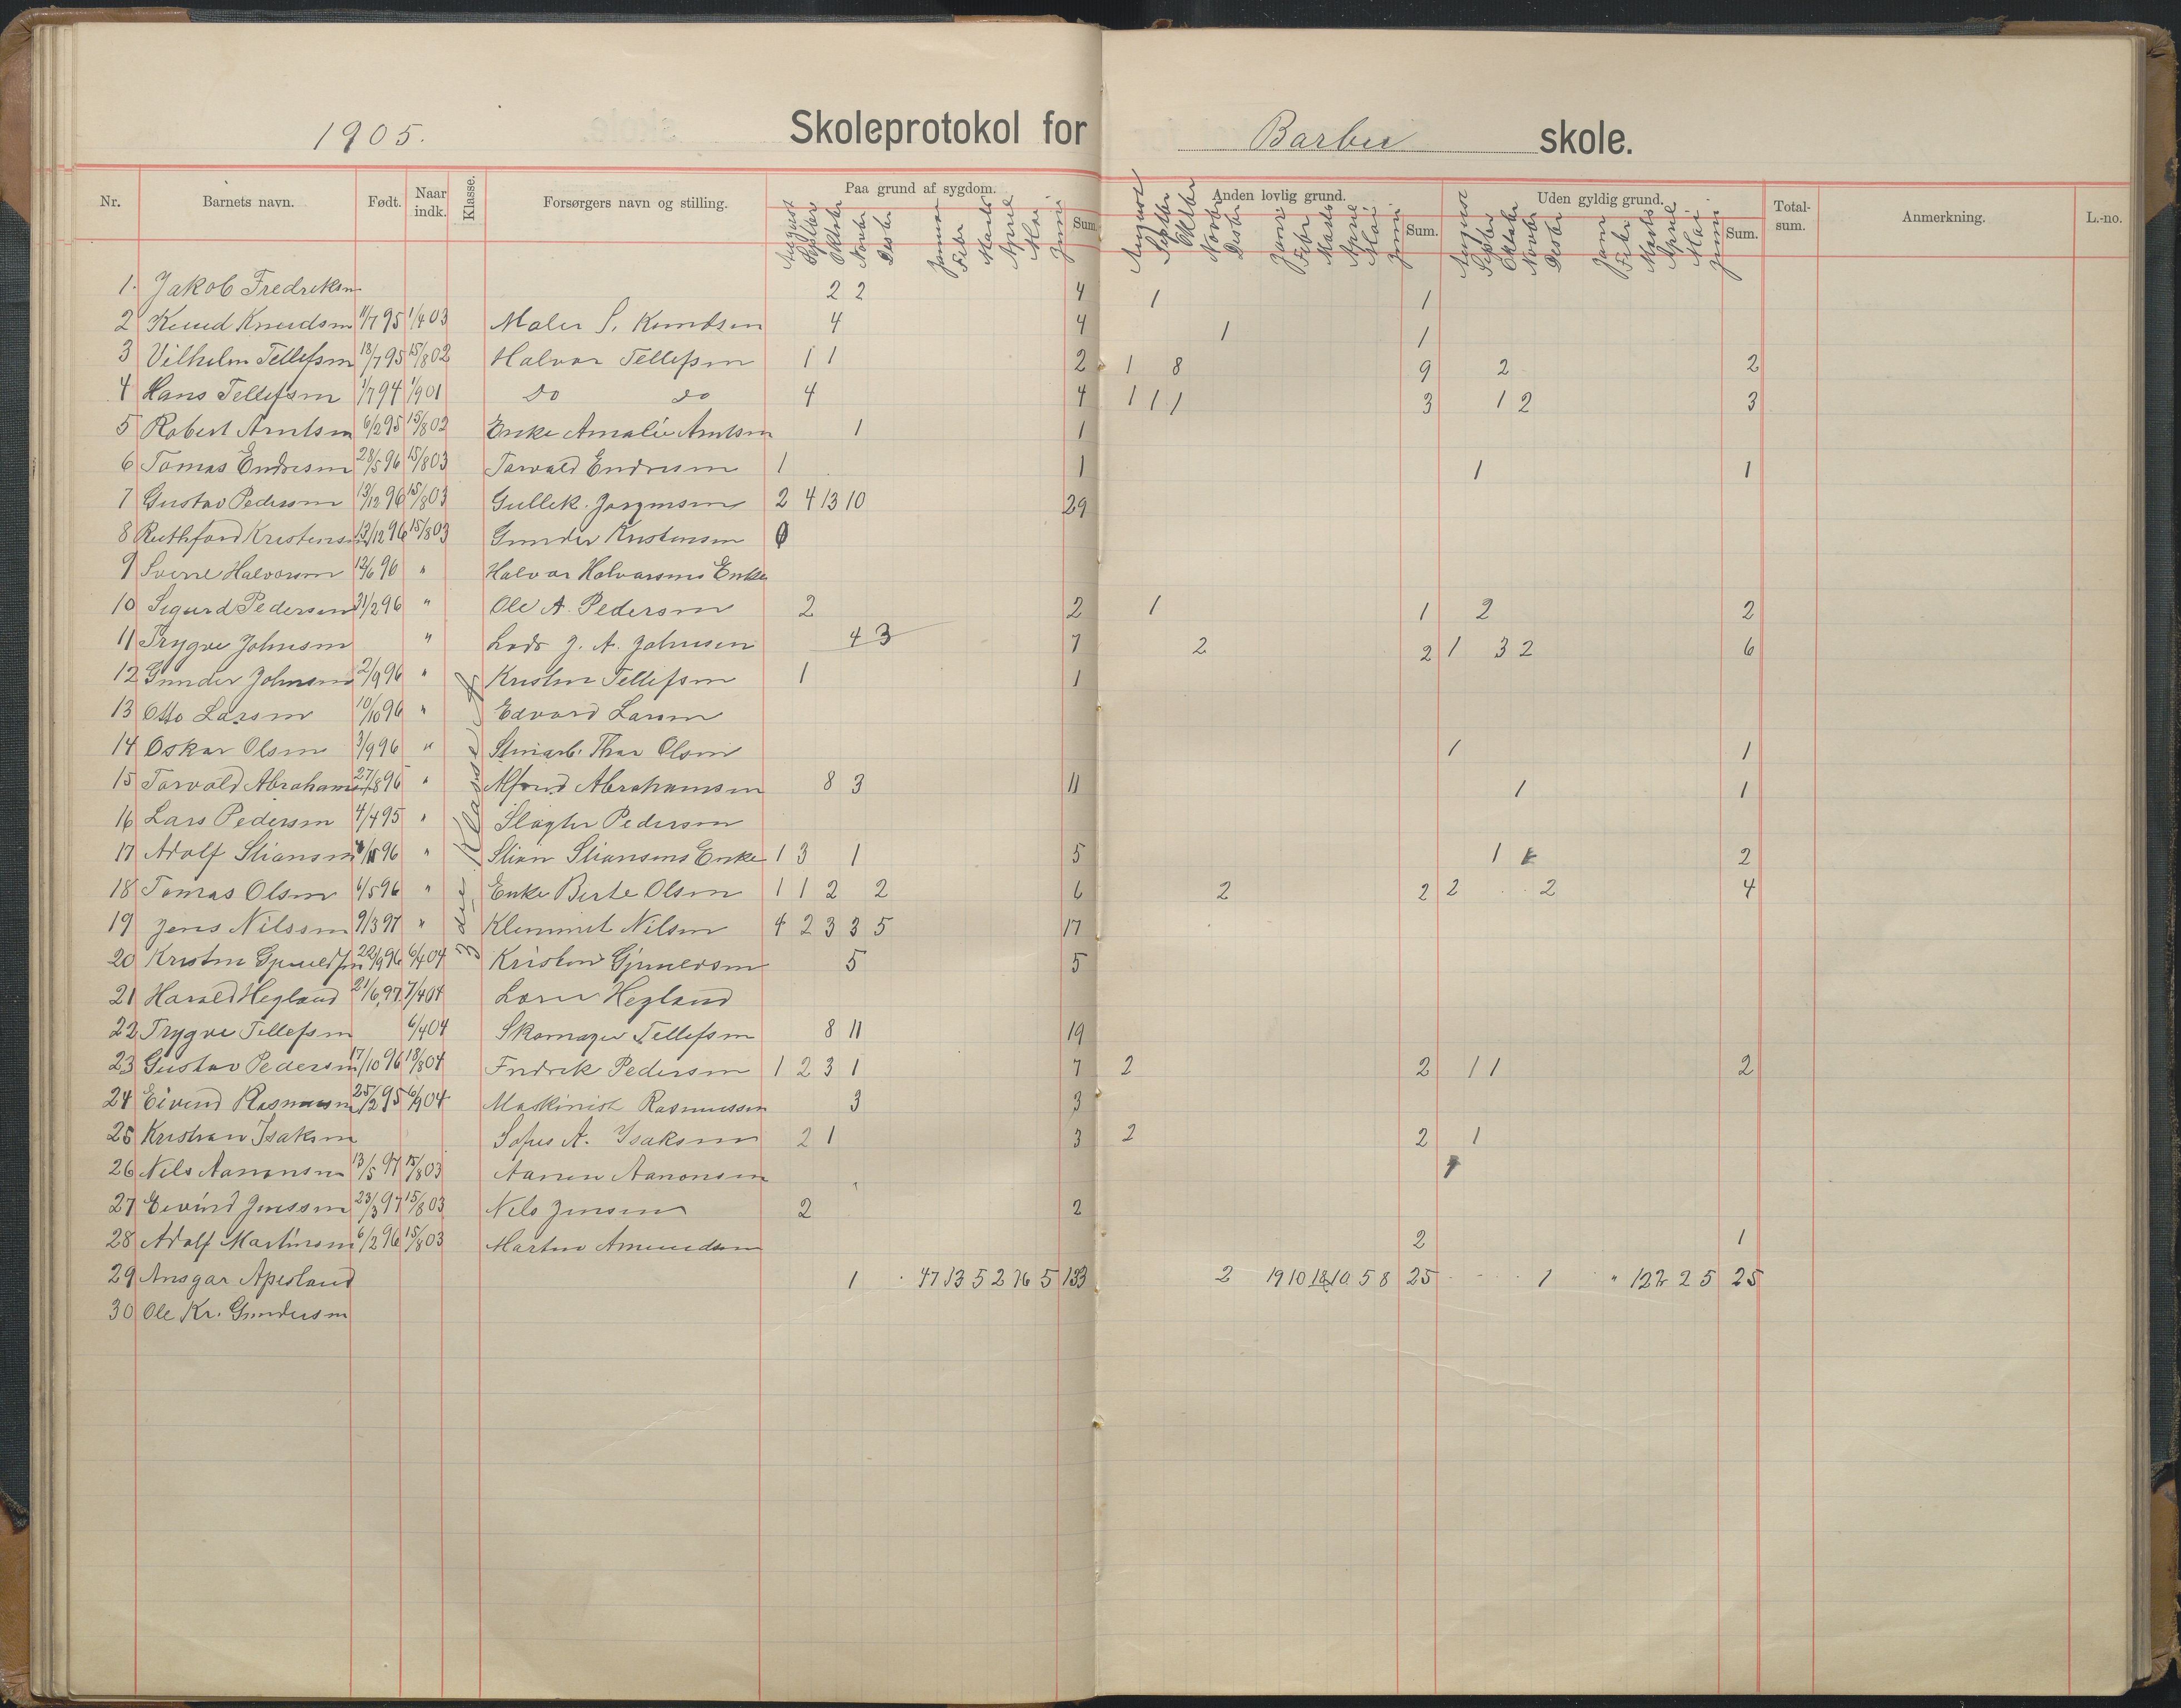 1905. Skoleprotokol for Barbu skole.
Nr. Barnets navn. Født. Naar indk. Klasse. Forsørgers navn og stilling. Paa grund af sygdom. Sum. Anden lovlig grund. Sum. Uden gyldig grund. Sum. Total-sum. Anmerkning. L.-no.
August Septbr Oktbr Novbr Desbr Januar Febr Marts April Mai Juni August Septbr Oktbr Novbr Desbr Janr Febr Marts April Mai Juni August Septbr Oktbr Novbr Desbr Janr Febr Marts April Mai Juni
1. Jakob Fredriksn 2 2 4 1 1
2 Knud Knudsen 11/7 95 1/4 03 Maler S. Knudsen 4 4 1 1
3 Vilhelm Tellefsen 18/7 95 15/8 02 Halvor Tellefsen 1 1 2 1 8 9 2 2
4 Hans Tellefsen 1/7 94 1/9 01 do do 4 4 1 1 1 3 1 2 3
5 Robert Arntsen 6/2 95 15/8 02 Enke Amalie Arntsen 1 1
6 Tomas Endresen 28/5 96 15/8 03 Torvald Endresen 1 1 1 1
7 Gustav Pedersen 13/12 96 15/8 03 Gullek. Jorgensen 2 4 13 10 29
8 Ruthford Kristensen 13/12 96 15/8 03 Gunder Kristensen 0
9 Sverre Halvorsen 12/6 96 " Halvor Halvorsens Enke
10 Sigurd Pedersen 31/2 96 " Ole A. Pedersen 2 2 1 1 2 2
11 Trygve Johnsen " Lods J. A. Johnsen 4 3 7 2 2 1 3 2 6
12 Gunder Johnsen 2/9 96 " Kristen Tellefsen 1 1
13 Otto Larsen 10/10 96 " Edvard Larsen
14 Oskar Olsen 3/9 96 " Stenarb. Thor Olsen 1 1
15 Torvald Abrahamsen 27/8 96 " Alfred Abrahamsen 8 3 11 1 1
16 Lars Pedersen 4/4 95 " Slagter Pedersen
17 Adolf Stiansen 96 " Stian Stiansens Enke 1 3 1 5 1 2
18 Tomas Olsen 6/5 96 " Enke Berte Olsen 1 1 2 2 6 2 2 2 2 4
19 Jens Nilssen 9/3 97 " Klemmet Nilsen 4 2 3 3 5 17
20 Kristen Gjeruldsen 22/9 96 6/4 04 Kristen Gjeruldsen 5 5
21 Harald Hegland 21/6 97 7/4 04 Hegland
22 Trygve Tellefsen 6/4 04 Skomager Tellefsen 8 11 19
23 Gustav Pedersen 17/10 96 18/8 04 Fredrik Pedersen 1 2 3 1 7 2 2 1 1 2
24 Eivind Rasmussen 25/2 95 6/9 04 Maskinist Rasmussen 3 3
25 Kristian Isaksen Sofus A. Isaksen 2 1 3 2 2 1
26 Nils Aanonsen 13/5 97 15/8 03 Aanen Aanonsen
27 Eivind Jenssen 23/3 97 15/8 03 Nils Jensen 2 2
28 Adolf Martinsen 6/2 96 15/8 03 Martin Amundsen 2 1
29 Ansgar Apesland 1 47 13 5 2 76 5 133 2 19 10 18 10 5 8 25 1 " 12 2 2 5 25
30 Ole Kr. Gundersen
3die Klasse